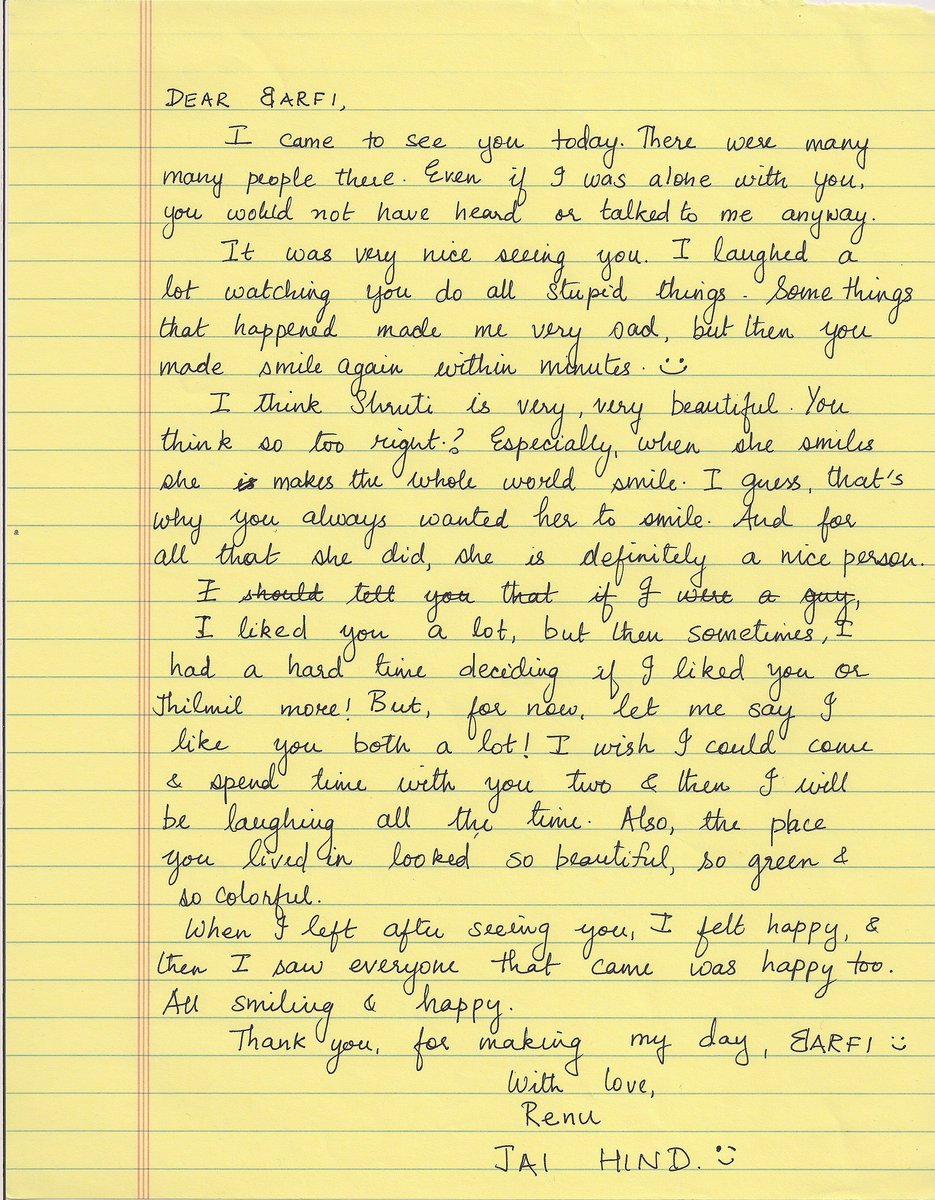 DEAR BARFI,
I came to see you today. There were many
many people there. Even if I was alone with you,
you would not have heard or talked to me anyway.
It was very nice seeing you. I laughed a
lot watching you do all stupid things. Some things
that happened made me very sad, but then you
made smile again within minutes. :)
I think Shruti is very, very beautiful. You
think so too right.? Especially, when she smiles
she is makes the whole world smile. I guess, that's
why you always wanted her to smile. And for
all that she did, she is definitely a nice person.
I should tell you that if I were a guy,
I liked you a lot, but then sometimes, I
had a hard time deciding if I liked you or
Jhilmil more! But, for now, let me say I
like you both a lot! I wish I could come
& spend time with you two & then I will
be laughing all the time. Also, the place
you lived in looked so beautiful, so green &
so colorful.
When I left after seeing you, I felt happy, &
then I saw everyone that came was happy too.
All smiling & happy.
Thank you, for making my day, BARFI :)
With love,
Renu
JAI HIND. :)